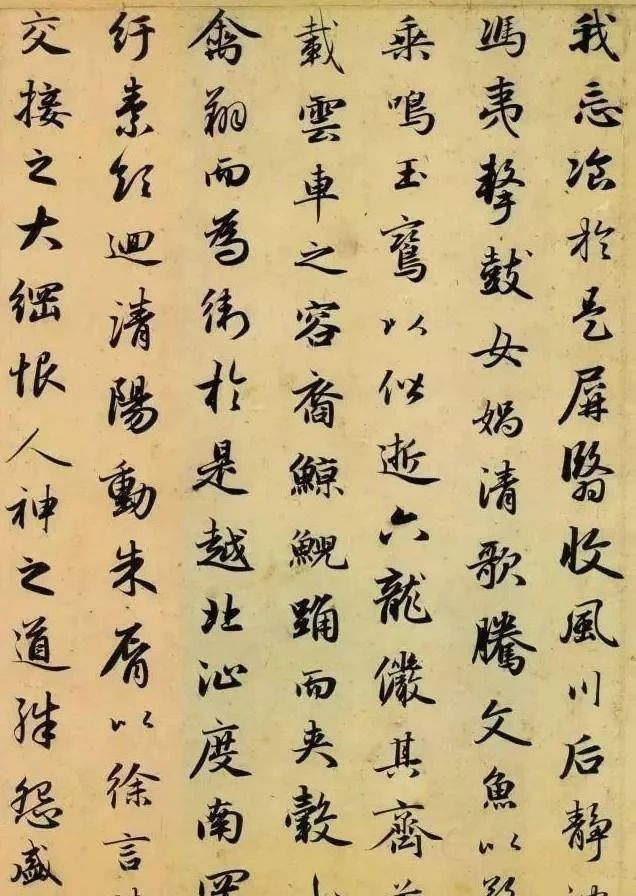 我忘飡於是屏翳收風川后静
馮夷擊鼓女媧清歌騰文魚以
乘鳴玉鸞以偕逝六龍儼其齊
載雲車之容裔鯨鯢踊而夾轂
禽翔而為衛於是越北沚度南岡
紆素領迴清陽動朱脣以徐言
交接之大綱恨人神之道殊怨盛